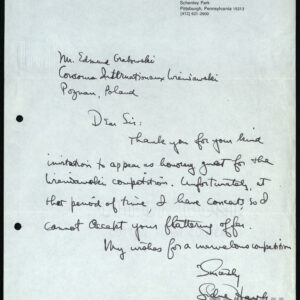 Schenley Park
Pittsburgh, Pennsylvania 15213
(412) 621-2600
Mr. Edmund Grabowski
Concorso Internationaux Wieniawski
Poznan, Poland
Dear Sir:
Thank you for your kind
invitation to appear as honory guest for the
Wieniawski competition. Unfortunately, at
that period of time, I have concerts so I
cannot accept your flattering offer.
My wishes for a marvelous competition
Sincerely